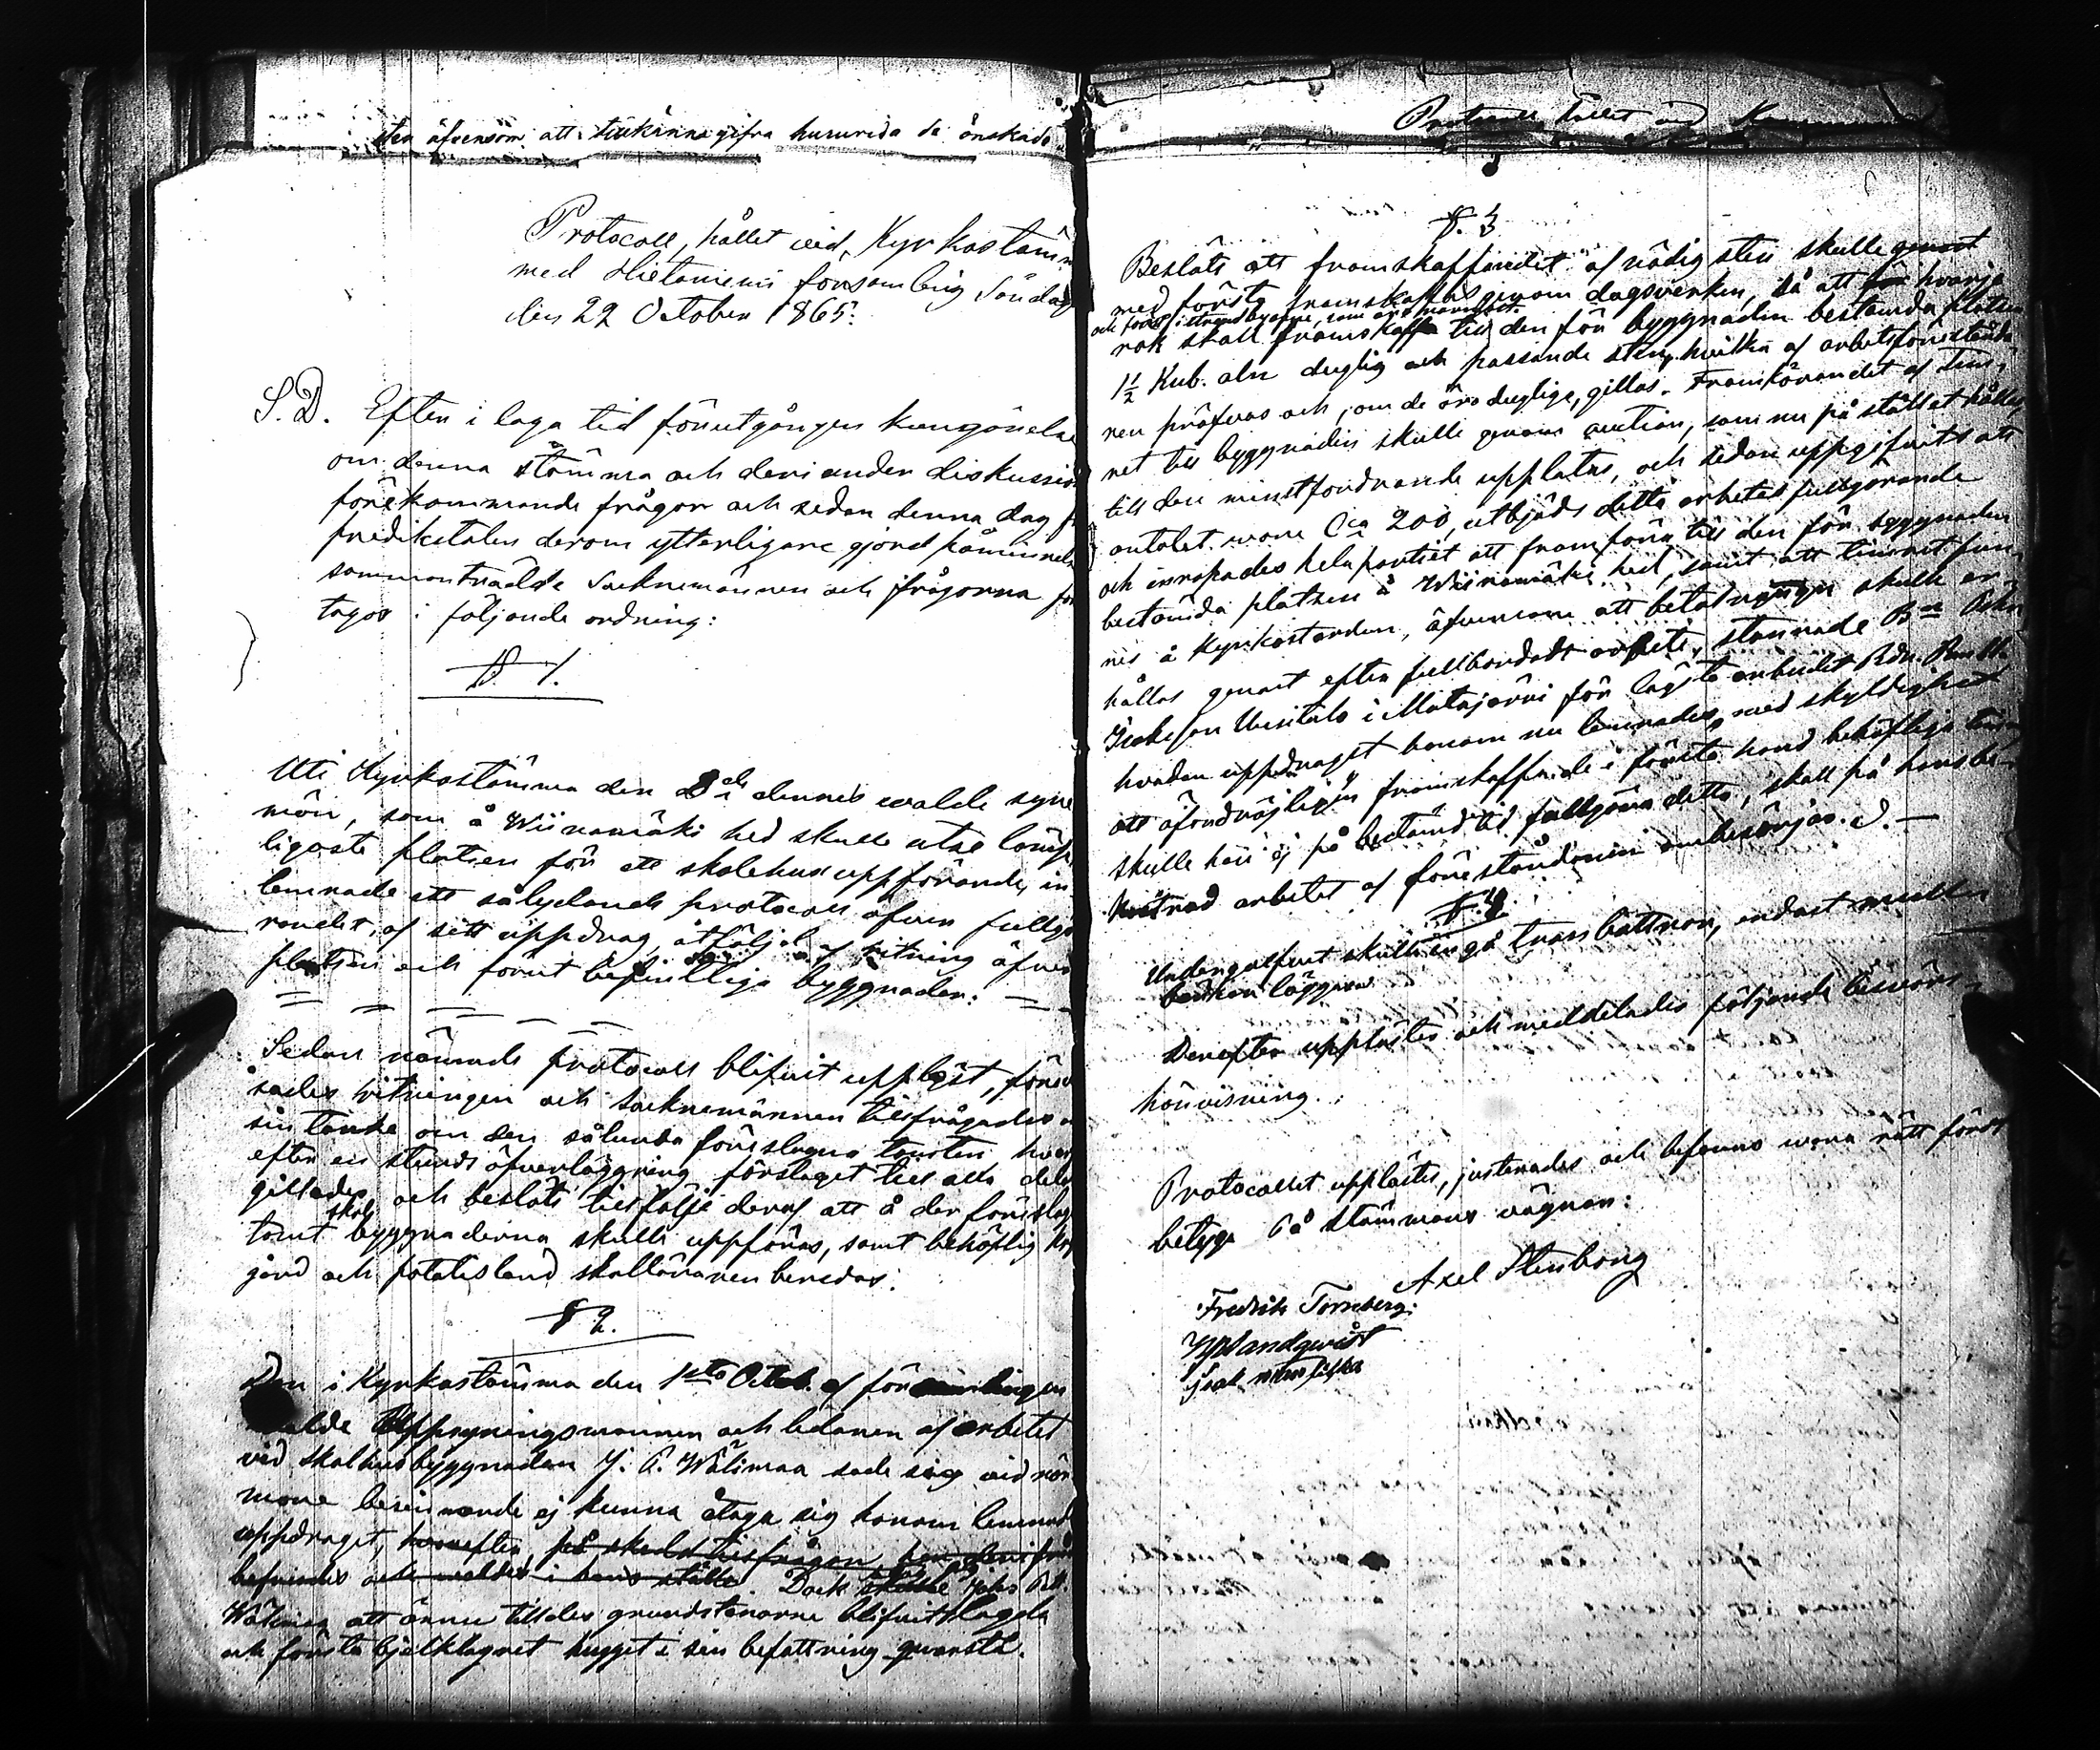 äfvensom att tillkännagifva huruvida de önskade
Protocoll, hållet vid, Kyrkostäm
med Hietaniemi församling Söndag
den 22 October 1865.
S. D. Efter i laga tid förutgången kungörelse
om denna stämma och deri under diskussion
förekommande frågor och sedan denna dag fr
predikstolen derom ytterligare gjord påminnel
sammanträdde Socknemännen och frågorna för
togos i följande ordning:
§. 1.
Uti Kyrkostämma den 8de dennes valde syne
män, som å Wiinamäki hed skulle utse lämp
ligaste platsen för ett skolehus uppförande, in
lemnade ett sålydande protocoll öfver fullgö
randet, af sitt uppdrag, åtföljd af ritning öfver
platsen och förut befintliga byggnader:
Sedan nämnde protocoll blifvit uppläst, förev
sades ritningen och socknemännen tillfrågades o
sin tanke om den sålunda föreslagna tomten hvar
efter en stunds öfverläggning förslaget till alla dela
gillades, och beslöts tillfölje deraf att å den föreslag
skol
tomt byggnaderna skulle uppföras, samt behöflig kry
gård och potatisland skolläraren beredas.
§ 2.
Den i Kyrkostämma den 1sta Octob. af församlingen
valde Uppsyningsmannen och ledaren af arbetet
vid skolhusbyggnaden J. P. Wälimaa sade sig vid när
mare besinnande ej kunna åtaga sig honom lemnad
uppdraget, hvarefter på skedd tillfrågan
befunnits och valdes i hans ställe. Dock skulle Johs Pet.
Wälimaa att ännu tilldes grundstenarne blifvit lagda
och första bjelklagret hugget i sin befattning qvarstå.
Protocoll hållet vid
§. 3
Beslöts att framskaffandet af nödig sten skulle genast
med första framskaffas genom dagsverken, så att hvarje
rök skall framskaffa till den för byggnaden bestämda platsen
1½ Kub. aln duglig och passande sten, hvilka af arbetsförestånda
ren pröfvas och, om de äro duglige, gillas. Framkörandet af Tim-
ret till byggnaden skulle genom auction, som nu på stället hålles
till den minstfordrande upplåtas, och sedan uppgifvits att
antalet vore Cca 200, utbjöds detta arbetes fullgörande
och inropades hela partiet att framföra till den för byggnaden
bestämda platsen å Wiinamäki hed, samt att timret fin-
nes å Kyrkostranden, äfvensom att betalningen skulle er-
hållas genast efter fullbordadt arbete, stannade Bn Johan
Isaksson Uusitalo i Matajärvi för lägsta anbudet
hvadan uppdraget honom nu lemnades, med skyldighet
att ofördröjligen framskaffa de i första hand behöflige
skulle han ej på bestämd tid fullgöra detta, skall på hans be-
kostnad arbetet af föreståndaren ombesörjas.
§. 4.
Undergolfvet skulle ingå tvars bottnar, endast mellan
bälkar läggas
Derefter upplästes och meddelades följande besvärs-
hänvisning.
Protocollet upplästes, justerades och befanns vara rätt fördt
betyga På stämmans vägnar:
Axel Stenborg
Fredrik Tornberg.